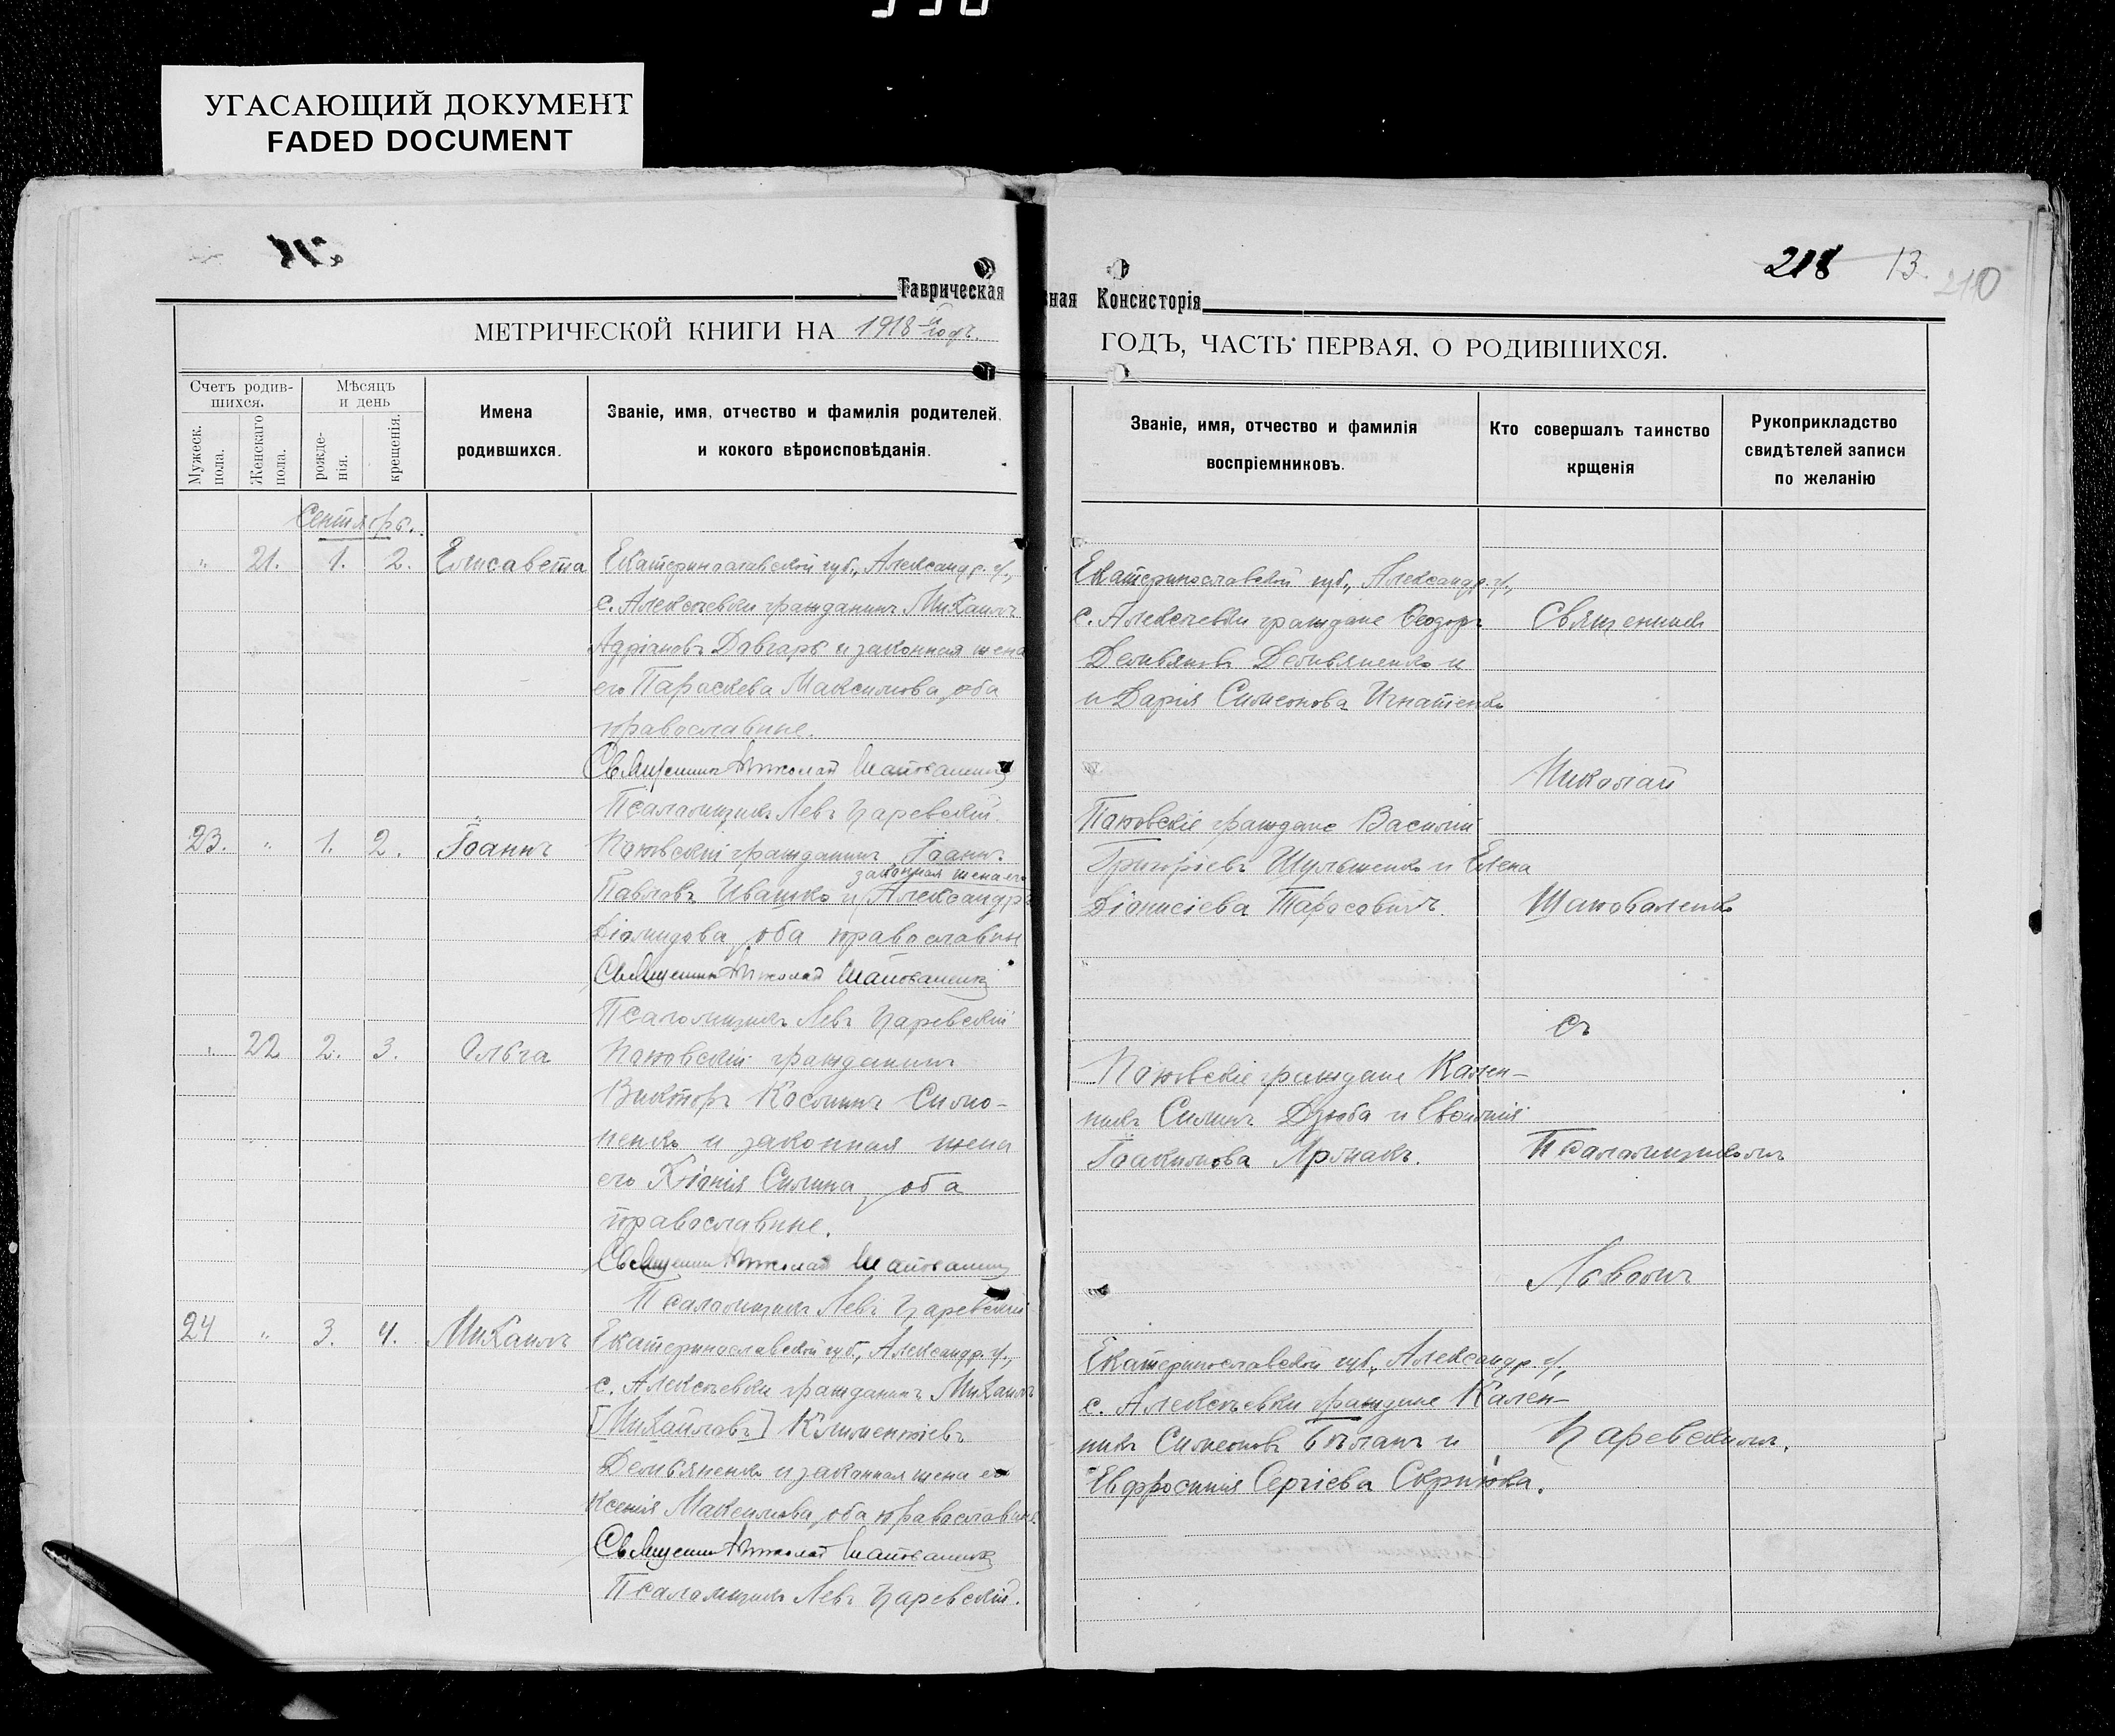 УГАСАЮЩИЙ ДОКУМЕНТ
FADED DOCUMENT
218 13. 210
Таврическая
ная Консисторія
МЕТРИЧЕСКОЙ КНИГИ НА 1918 й годъ.
ГОДЪ, ЧАСТЬ ПЕРВАЯ, О РОДИВШИХСЯ.
Счетъ родив-
шихся.
Мужеск.
пола.
Женскаго
пола.
Мѣсяцъ
и день
рожде-
нія.
крещенія.
Имена
родившихся.
Званіе, имя, отчество и фамилія родителей,
и кокого вѣроисповѣданія.
Званіе, имя, отчество и фамилія
воспріемниковъ.
Кто совершалъ таинство
крщенія
Рукоприкладство
свидѣтелей записи
по желанію
Сентябрь.
" 21. 1. 2. Елисавета
Екатеринославской губ., Александр. у.,
с. Алексѣевки гражданинъ Михаилъ
Адріановъ Довгаръ и законная жена
его Параскева Максимова, оба
православные.
Священникъ Николай Шаповаленко
Псаломщикъ Левъ Царевскій.
23. " 1. 2. Іоаннъ
Поповскій гражданинъ Іоаннъ
законная жена его
Павловъ Ивашко и Александра
Діомидова, оба православные
Священникъ Николай Шаповаленко
Псаломщикъ Левъ Царевскій
" 22 2. 3. Ольга
Поповскій гражданинъ
Викторъ Косминъ Симо-
ненко и законная жена
его Хіонія Силина, оба
православные.
Священникъ Николай Шаповаленко
Псаломщикъ Левъ Царевскій
24 " 3. 4. Михаилъ
Екатеринославской губ., Александр. у.,
с. Алексѣевки гражданинъ Михаилъ
[Михайловъ] Климентіевъ
Демьяненко и законная жена его
Ксенія Максимова, оба православные.
Священникъ Николай Шаповаленко
Псаломщикъ Левъ Царевскій.
Екатеринославской губ., Александр. у.,
с. Алексѣевки граждане Ѳеодоръ
Демьяновъ Демьяненко и
и Дарія Симеонова Игнатенко
Поповскіе граждане Василій
Григоріевъ Шульженко и Елена
Діонисіева Тарасовичъ.
Поповскіе граждане Кален-
никъ Силинъ Дзюба и
Іоакимова Ярмакъ.
Екатеринославской губ., Александр. у.,
с. Алексѣевки граждане Кален-
никъ Симеоновъ Бѣланъ и
Евфросинія Сергіева Скрипка.
Священникъ
Николай
Шаповаленко
съ
Псаломщикомъ
Львомъ
Царевскимъ.